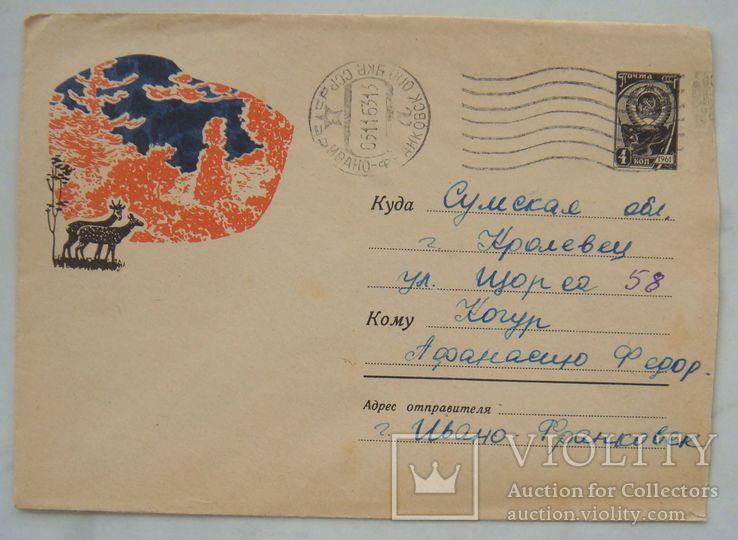 ИВАНО-ФРАНКОВСК ОПП УКР. ССР
051163 13
Почта СССР
4 коп 1961
Куда Сумская обл.
г. Кролевец
ул. Щорса 58
Кому Когур
Афанасию Федор.
Адрес отправителя
г. Ивано-Франковск
VIOLITY
Auction for Collectors
auction.violity.com